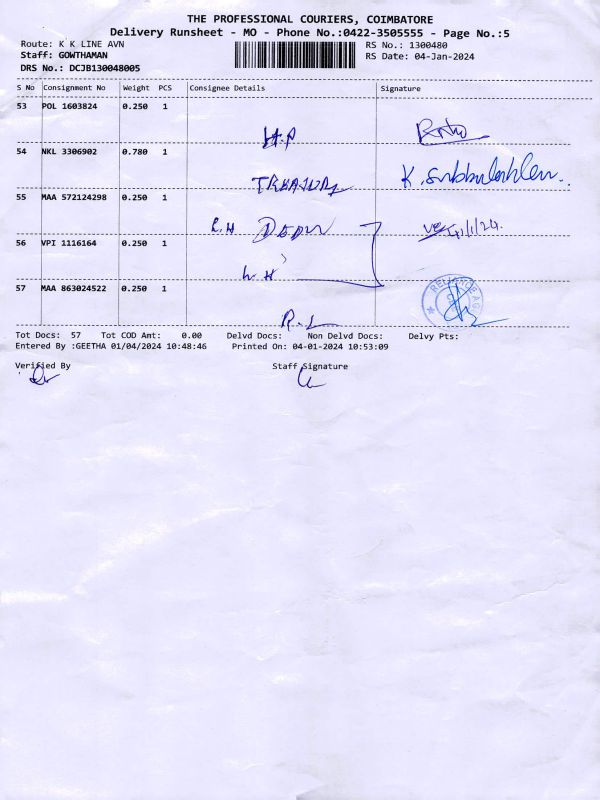 THE PROFESSIONAL COURIERS, COIMBATORE
Delivery Runsheet - MO - Phone No.:0422-3505555 - Page No.:5
Route: K K LINE AVN RS No.: 1300480
Staff: GOWTHAMAN RS Date: 04-Jan-2024
DRS No.: DCJB130048005
S No Consignment No Weight PCS Consignee Details Signature
53 POL 1603824 0.250 1
H.P
54 NKL 3306902 0.780 1
K. Subbulakhlen..
55 MAA 572124298 0.250 1
L.H
56 VPI 1116164 0.250 1
L. H
57 MAA 863024522 0.250 1
RELIANCE
R. L
Tot Docs: 57 Tot COD Amt: 0.00 Delvd Docs: Non Delvd Docs: Delvy Pts:
Entered By :GEETHA 01/04/2024 10:48:46 Printed On: 04-01-2024 10:53:09
Verified By Staff Signature